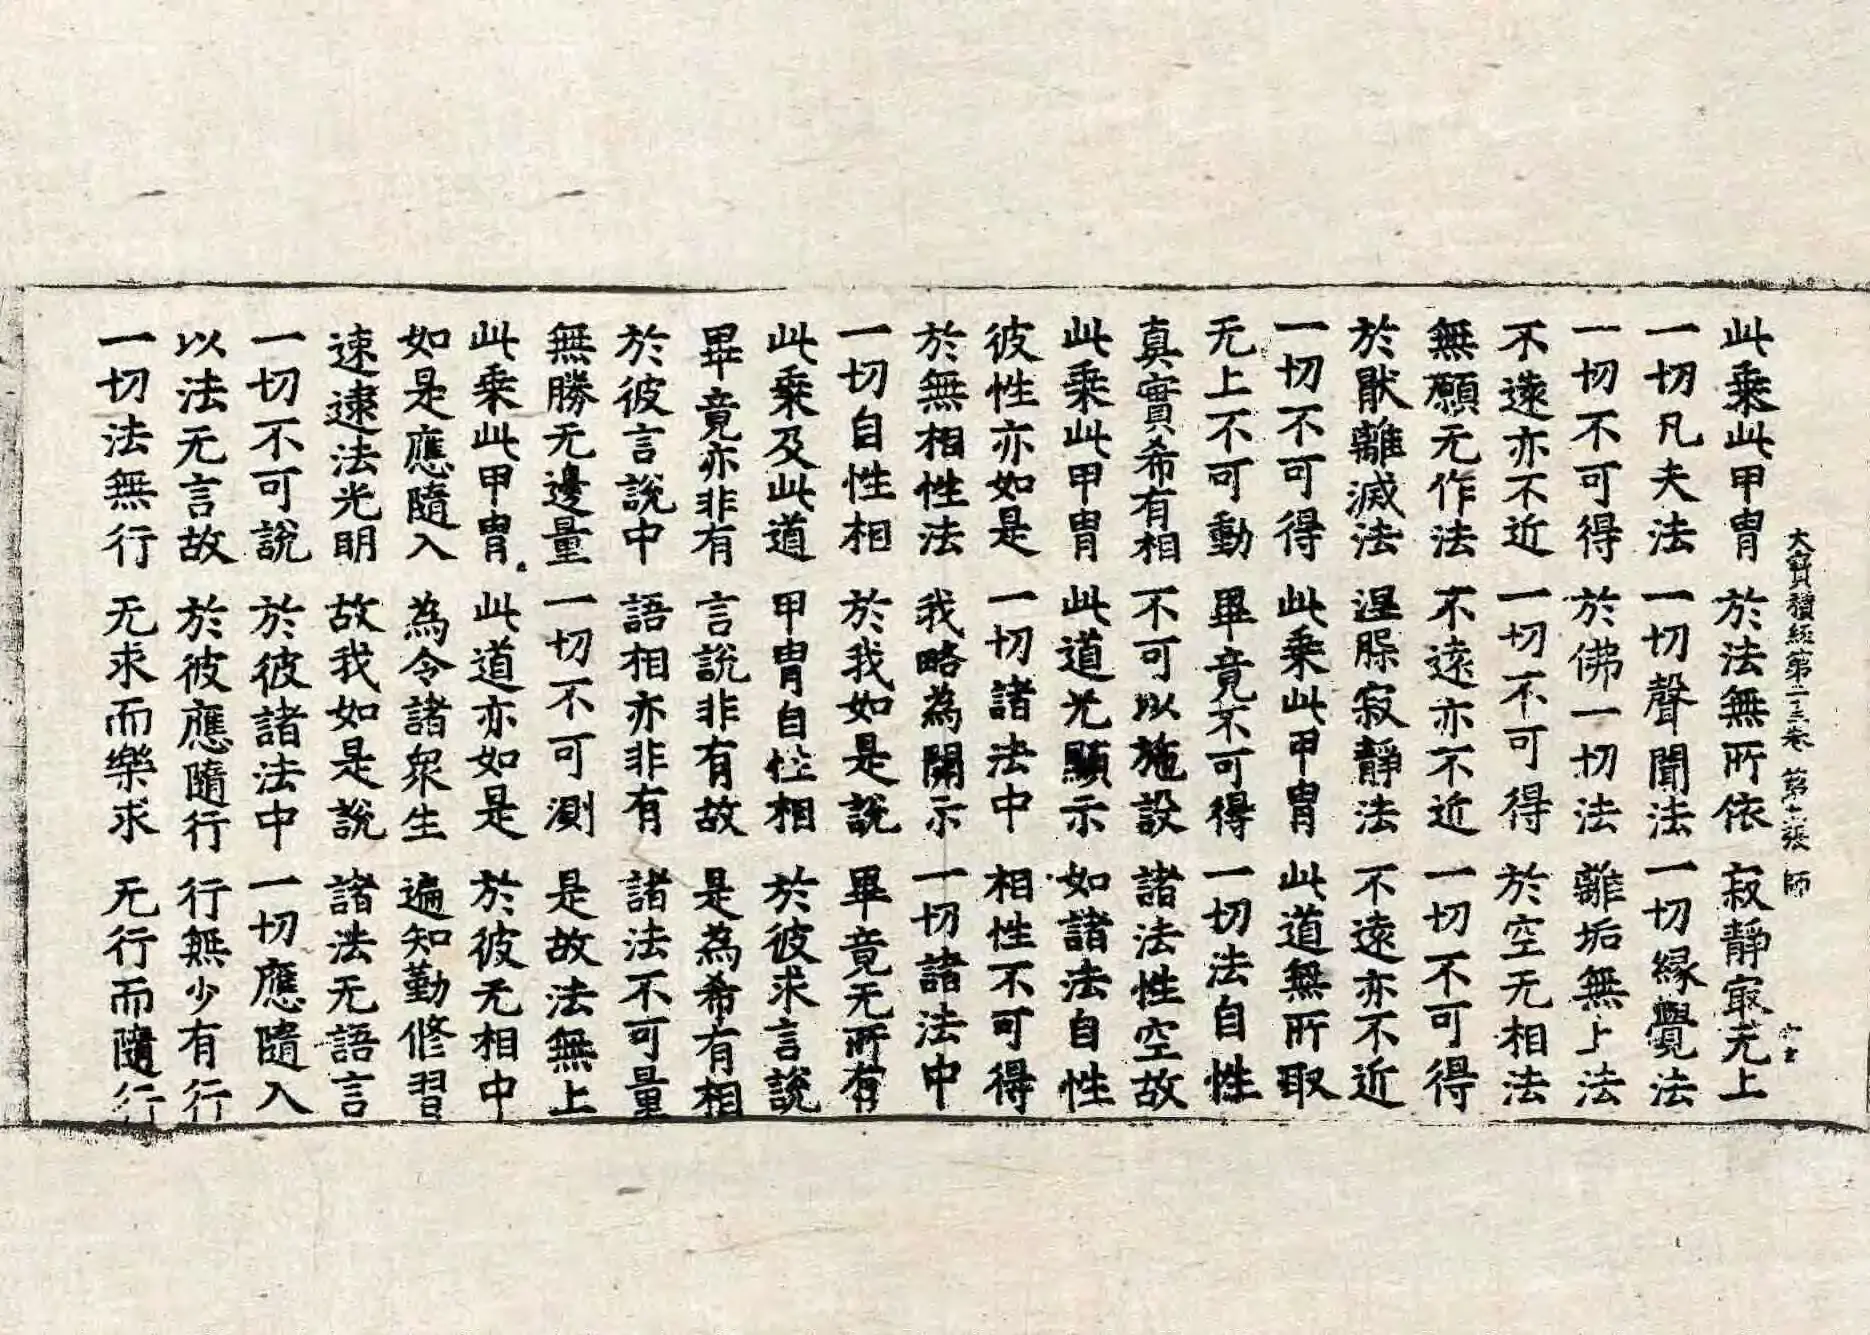 大寶積經第二十三卷 第十張 師
此乘此甲冑 於法無所依 寂靜㝡无上
一切凡夫法 一切聲聞法 一切緣覺法
一切不可得 於佛一切法 離垢無上法
不遠亦不近 一切不可得 於空无相法
無願无作法 不遠亦不近 一切不可得
於猒離滅法 涅槃寂靜法 不遠亦不近
一切不可得 此乘此甲冑 此道無所取
无上不可動 畢竟不可得 一切法自性
真實希有相 不可以施設 諸法性空故
此乘此甲冑 此道光顯示 如諸法自性
彼性亦如是 一切諸法中 相性不可得
於無相性法 我略為開示 一切諸法中
一切自性相 於我如是說 畢竟无所有
此乘及此道 甲冑自性相 於彼求言說
畢竟亦非有 言說非有故 是為希有相
於彼言說中 語相亦非有 諸法不可量
無勝无邊量 一切不可測 是故法無上
此乘此甲冑 此道亦如是 於彼无相中
如是應隨入 為令諸眾生 遍知勤修習
速逮法光明 故我如是說 諸法无語言
一切不可說 於彼諸法中 一切應隨入
以法无言故 於彼應隨行 行無少有行
一切法無行 无求而樂求 无行而隨行